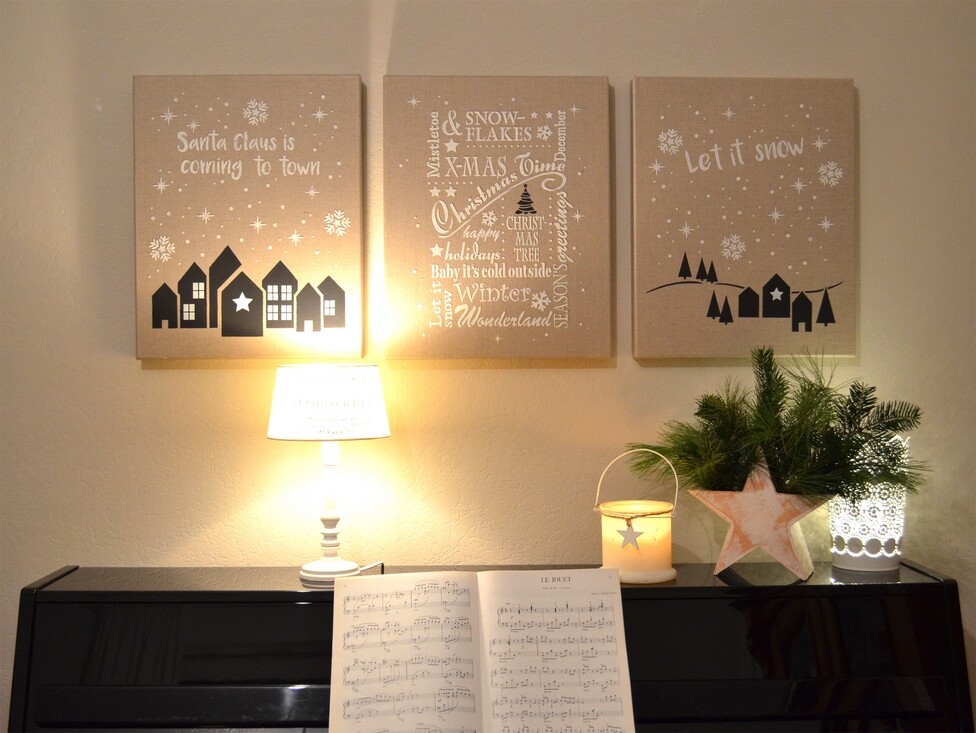 Santa Claus is
coming to town
Mistletoe
& SNOW-
FLAKES
December
X-MAS Time
Christmas
happy
holidays
CHRIST
MAS
TREE
greetings
Baby it's cold outside
Let it
snow
Winter
Wonderland
SEASON'S
Let it snow
LE JOUET